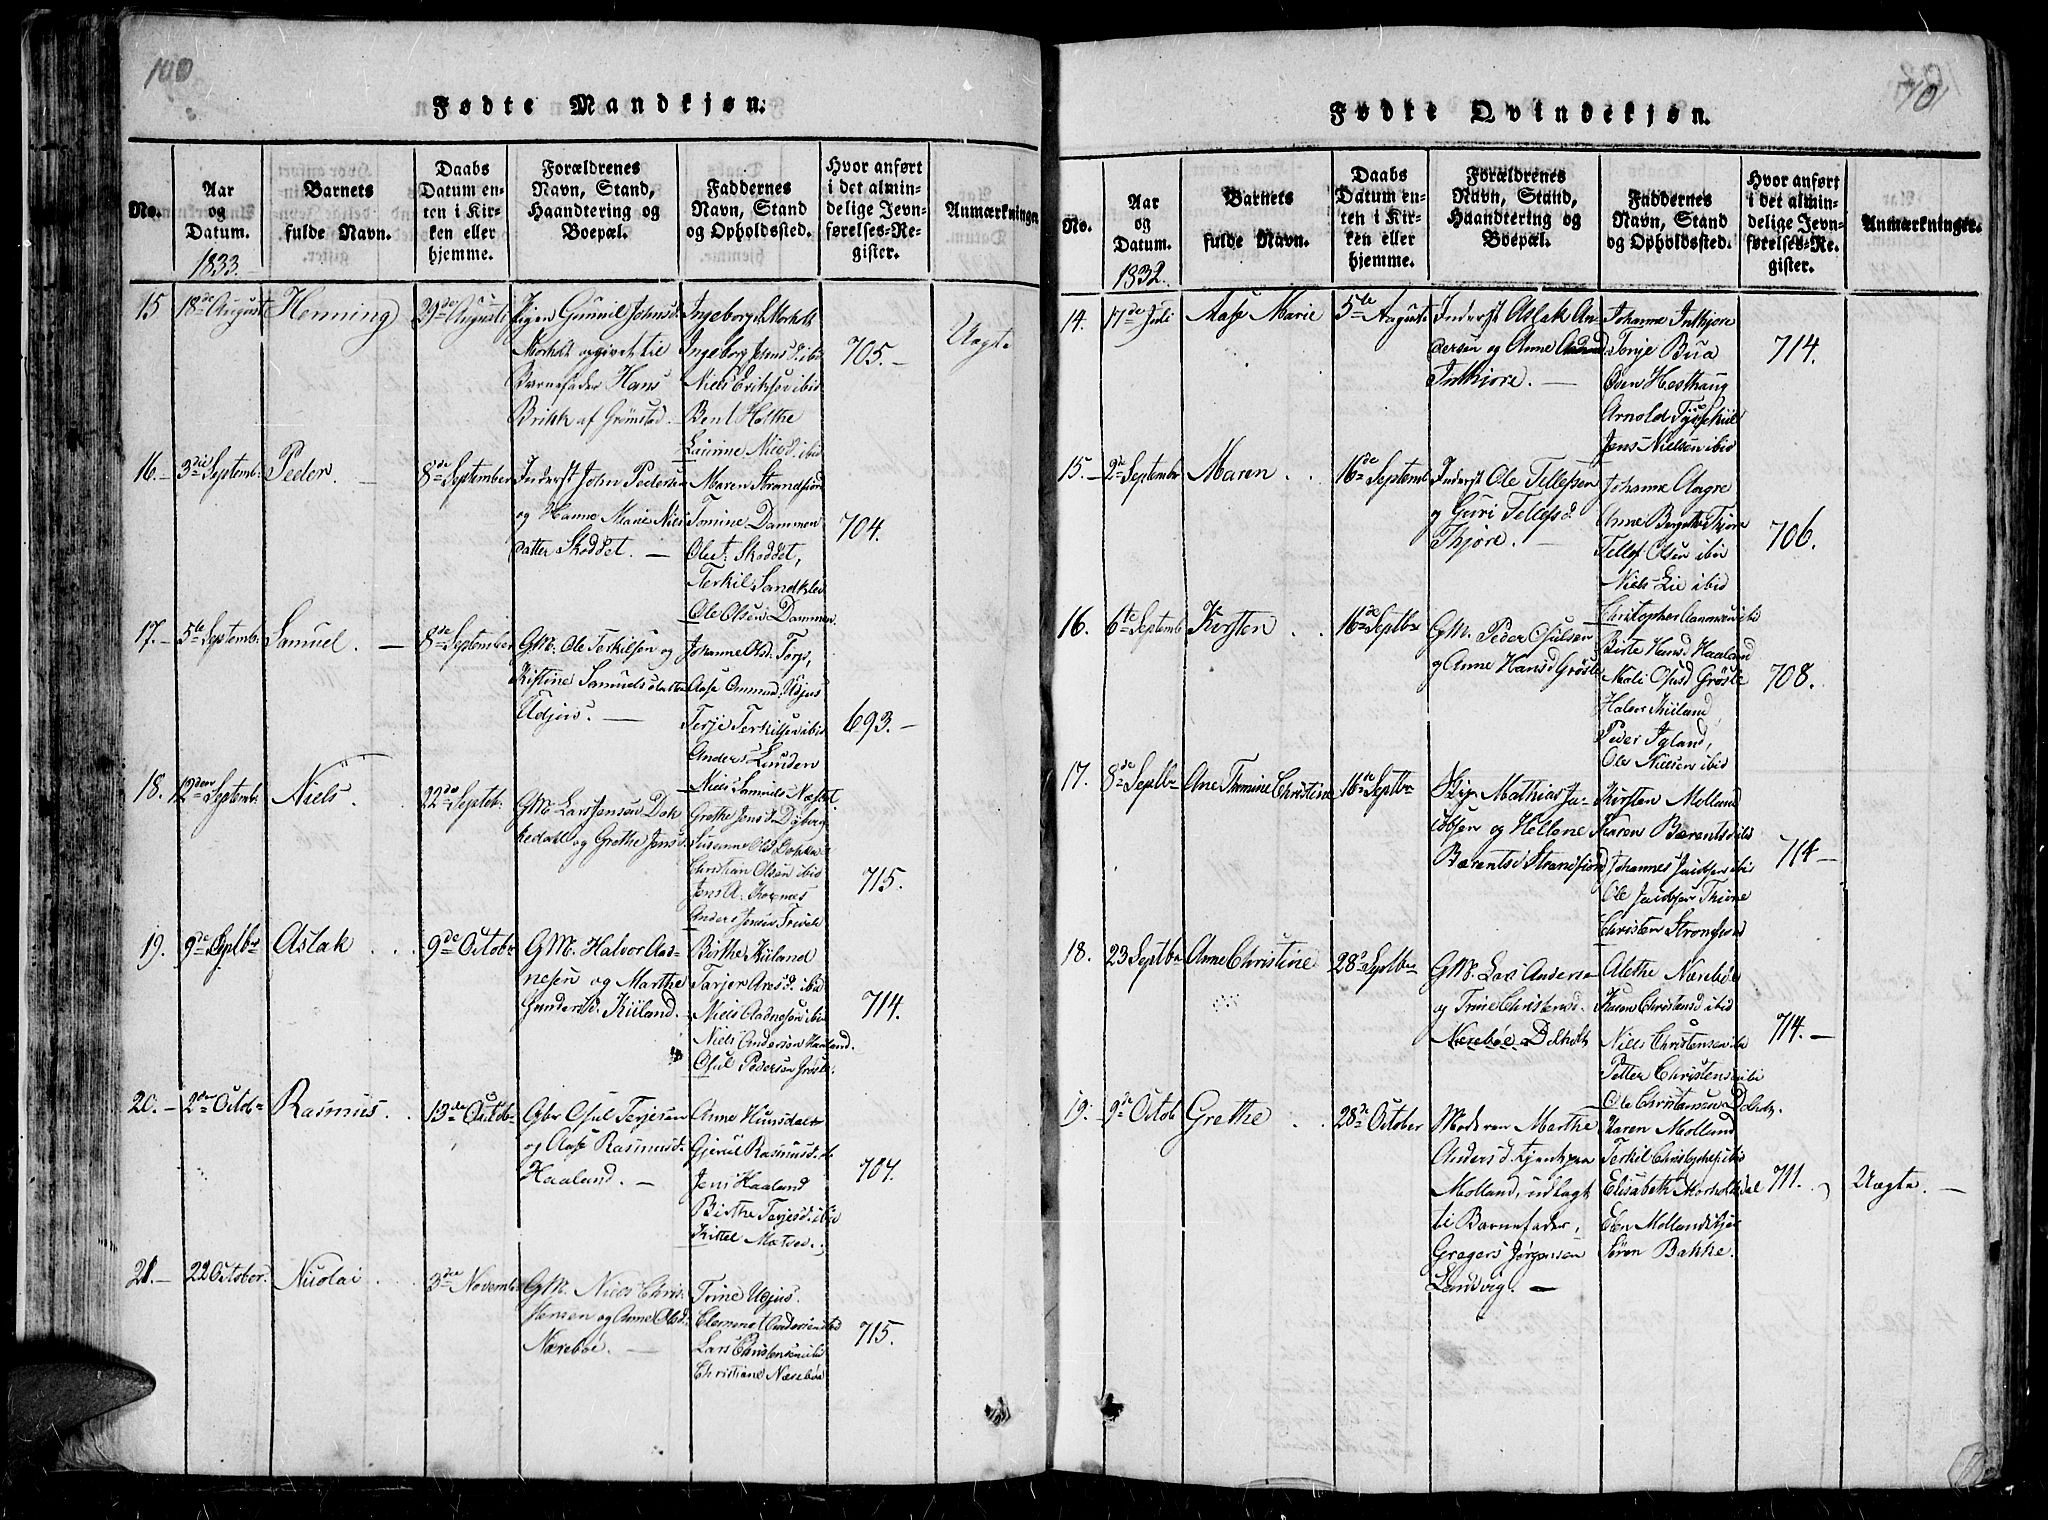 100
Fødte Mandkjøn.
No.
Aar og Datum.
1833.
Barnets fulde Navn.
Daabs Datum enten i Kirken eller hjemme.
Forældrenes Navn, Stand, Haandtering og Boepæl.
Faddernes Navn, Stand og Opholdssted.
Hvor anført i det almindelige Jevnførelses-Register.
Anmærkninger
15
18de August
Henning
Pigen Gunnil Johnsd.
Morholt opgivet til
Barnefader Hans
Brikk af Grømstad.
Ingeborg Morholt
Ingeborg Jensd. ibid
Niels Eriksen ibid
Bent Holthe
705.
Uægte
16.
3die Septemb.
Peder.
8de September
Inderst John Pedersen
og Hanne Marie Niels
datter Skoddet.
Maren Strandfiord
Tomine Dammen
Ole T. Skoddet,
Terkil Sandklev
Ole Olsen Dammen.
704.
17.
5te Septemb.
Samuel.
8de September
G.M. Ole Terkilsen og
Kistine Samuelsdatter
Udjus.
Johanne Olsd. Torp,
Aase Ommund. Udjus
Terje Terkilsen ibid
Anders Lunden
Niels Samuels Næset.
693.
18.
12den Septemb.
Niels.
22de Septeb.
G.M. Lars Jensen Dok
kedahl og Grethe Jensd.
Grethe Jensd. Dybvig
Susanne Olsd. Dokka
Christian Olsen ibid
Jens A.
715.
19.
9de Septbr
Aslak
9de Octobr
G.M. Halvor Aad-
nesen og Marthe
Gundersd. Kiiland.
Birthe Kiiland
Tarjer Aresd. ibid
Niels Aadnesen ibid
Niels Andersen Haaland.
Osul Pedersen Grøsle.
714.
20.
2den Octob
Rasmus.
13de Octob
Gbr Osul Terjesen
og Aase Rasmusd.
Haaland.
Anne Hunsdalen
Gjeruel Rasmusd.
Jens Haaland
Birthe Terjesd. ibid
Kittel
707.
21.
22 October.
Nicolai
3die Novemb
G.M. Niels Chris
tensen og Anne Olsd.
Nærebøe.
Trine Udjus.
Clement Andersen
Lars Christensen ibid
Christiane Nærebøe
715.
101
Fødte Qvindekjøn.
No.
Aar og Datum.
1832.
Barnets fulde Navn.
Daabs Datum enten i Kirken eller hjemme.
Forældrenes Navn, Stand, Haandtering og Boepæl.
Faddernes Navn, Stand og Opholdssted.
Hvor anført i det almindelige Jevnførelses-Register.
Anmærkninger.
14.
17de Juli
Aase Marie
5te August
Inderst Aslak An
dersen og Anne
Inthjore.
Johanne Inthjore
Tonje Bua
Even Hesthaug
Arnold
Jens Nielsen ibid
714.
15.
2de Septembr
Maren
16de Septemb
Inderst Ole Tellefsen
og Guri Tellefsd.
Thjore.
Johanne Aagre
Anne Bergethe Thjore
Tellef Olsen ibid
Niels Lie ibid
706.
16.
6te Septemb
Kirsten
16de Septbr
G.M. Peder Osulsen
og Anne Hansd Grøsle
Birte Hansd Haaland
Mali Osusd Grøsle
Halvor Kiiland
Peder Igland,
Ole Nielsen ibid
708.
17.
8de Septbr
Ane Thomine Christine
16de Septbr
Skip. Mathias Ja-
cobsen og Hellene
Bærentsd. Strandfiord
Kirsten Molland
Karen Bærentsd. ibid
Johannes Jacobsen ibid
Ole Jacobsen Thjore
714
18.
23 Septbr
Anne Christine
28de Septbr
G.M. Lars Andersen
og Trine Christensd.
Nærebøe Dolholt
Alethe Nærebøe
Karen Christensd ibid
Niels Christensen
Petter Christens ibi
Ole Christensen Dolholt.
714.
19.
9de Octob
Grethe
28de October
Moderen Marthe
Andersd. tjenst paa
Molland, udlagt
til Barnefader,
Gregers Jørgensen
Landvig.
Karen Molland
Terkil Christophers ibid
Elisabeth Morholtdal
Even Mollandskjær
Søren Bakke.
711.
Uægte.